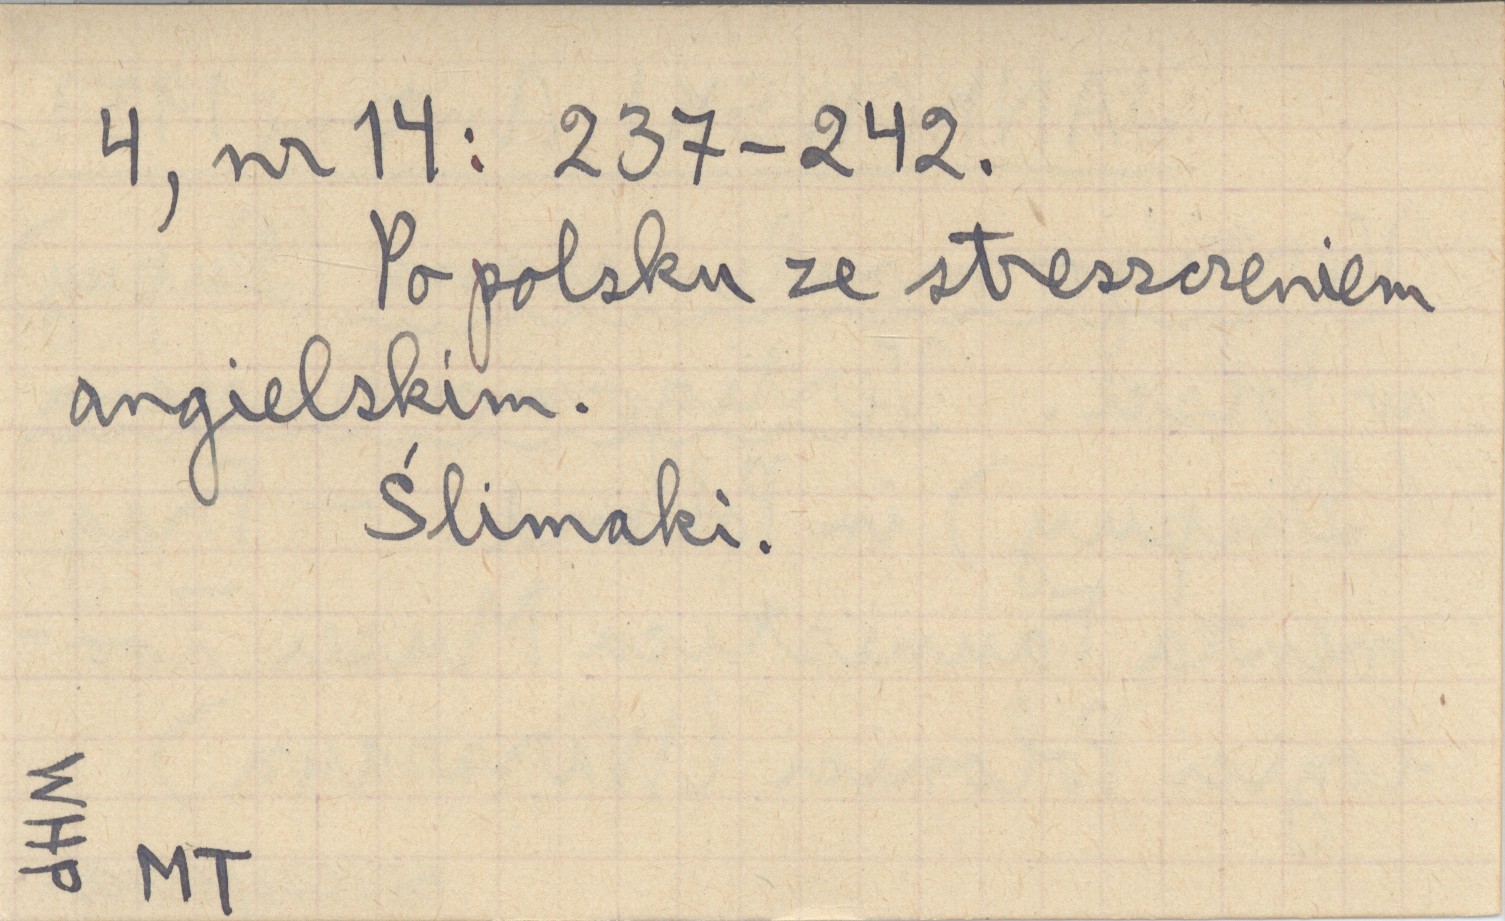 4, nr 14: 237-242.
Po polsku ze streszczeniem
angielskim.
Ślimaki.
WHP
MT